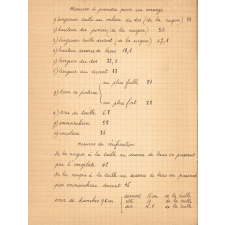 Mesures à prendre pour un corsage
1) longueur taille au milieu du dos (de la nuque) 38
2) hauteur des pinces (de la nuque) 30
3) longueur taille devant (de la nuque) 47,5
4) hauteur dessous de bras 18,5
5) largeur du dos 33,5
6) largeur du devant 38
7) tour de poitrine
au plus faible 80
au plus fort 88
8) tour de taille 68
9) emmanchure 38
10) encolure 36
mesures de vérification
De la nuque à la taille au dessous de bras en passant
par l'omoplate 42
De la nuque à la taille au dessous de bras en passant
par emmanchure devant 46
tour de hanches 96 cm
devant de la taille
côté de la taille
dos de la taille